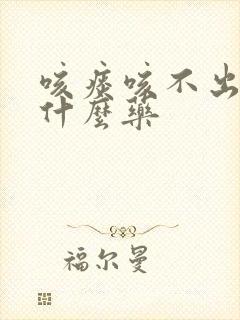 咳痰咳不出
什麼藥
福尔曼